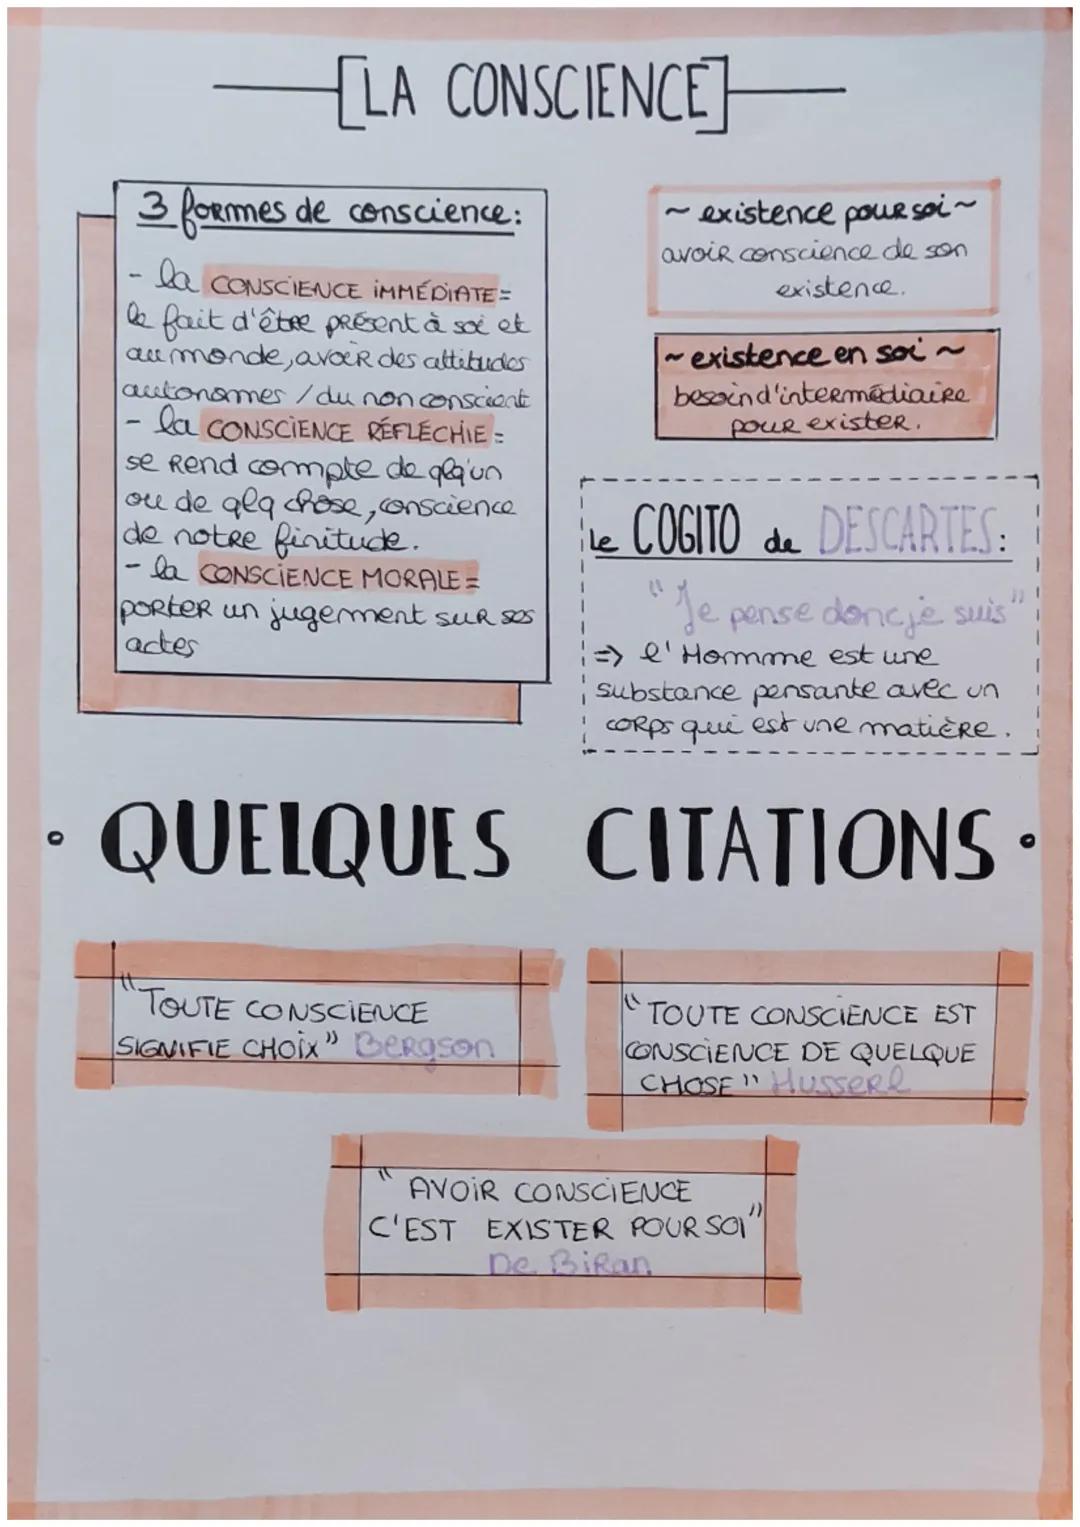 [LA CONSCIENCE]
3 formes de conscience:
- la CONSCIENCE IMMÉDIATE =
le fait d'être présent à soi et
au monde, avoir des attitudes
autonomes / du non conscient
- la CONSCIENCE RÉFLÉCHIE =
se rend compte de qlq'un
ou de qlq chose, conscience
de notre finitude.
- la CONSCIENCE MORALE =
porter un jugement sur ses
actes
~ existence pour soi ~
avoir conscience de son
existence.
~ existence en soi ~
besoin d'intermédiaire
pour exister.
le COGITO de DESCARTES:
"Je pense donc je suis"
=> l'Homme est une
substance pensante avec un
corps qui est une matière.
• QUELQUES CITATIONS •
"TOUTE CONSCIENCE
SIGNIFIE CHOIX" Bergson
"TOUTE CONSCIENCE EST
CONSCIENCE DE QUELQUE
CHOSE" Husserl
"AVOIR CONSCIENCE
C'EST EXISTER POUR SOI"
De Biran